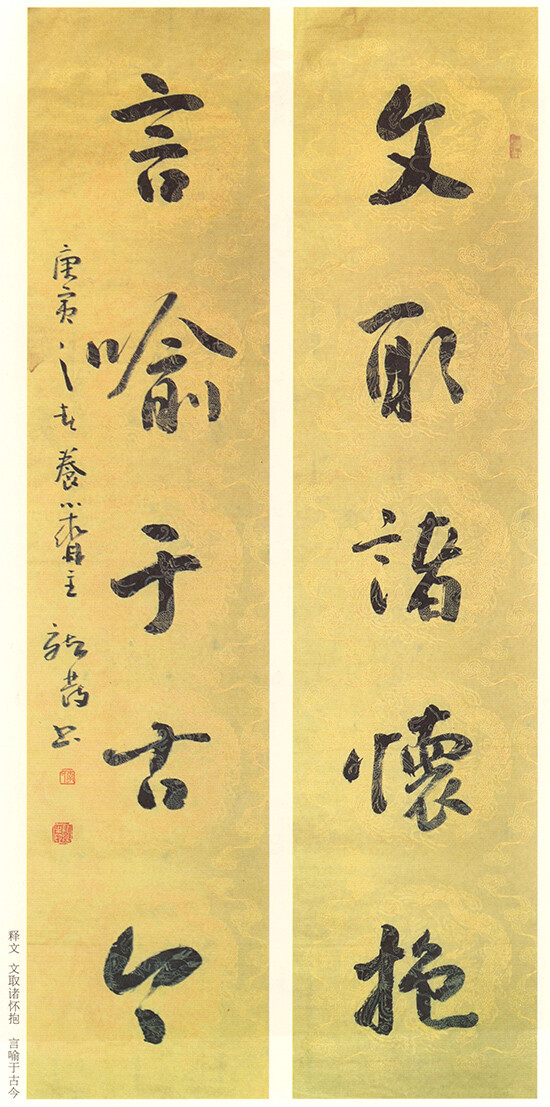 文取諸懷抱
言喻于古今
庚寅之春養心齋主
書
释文　文取诸怀抱　言喻于古今